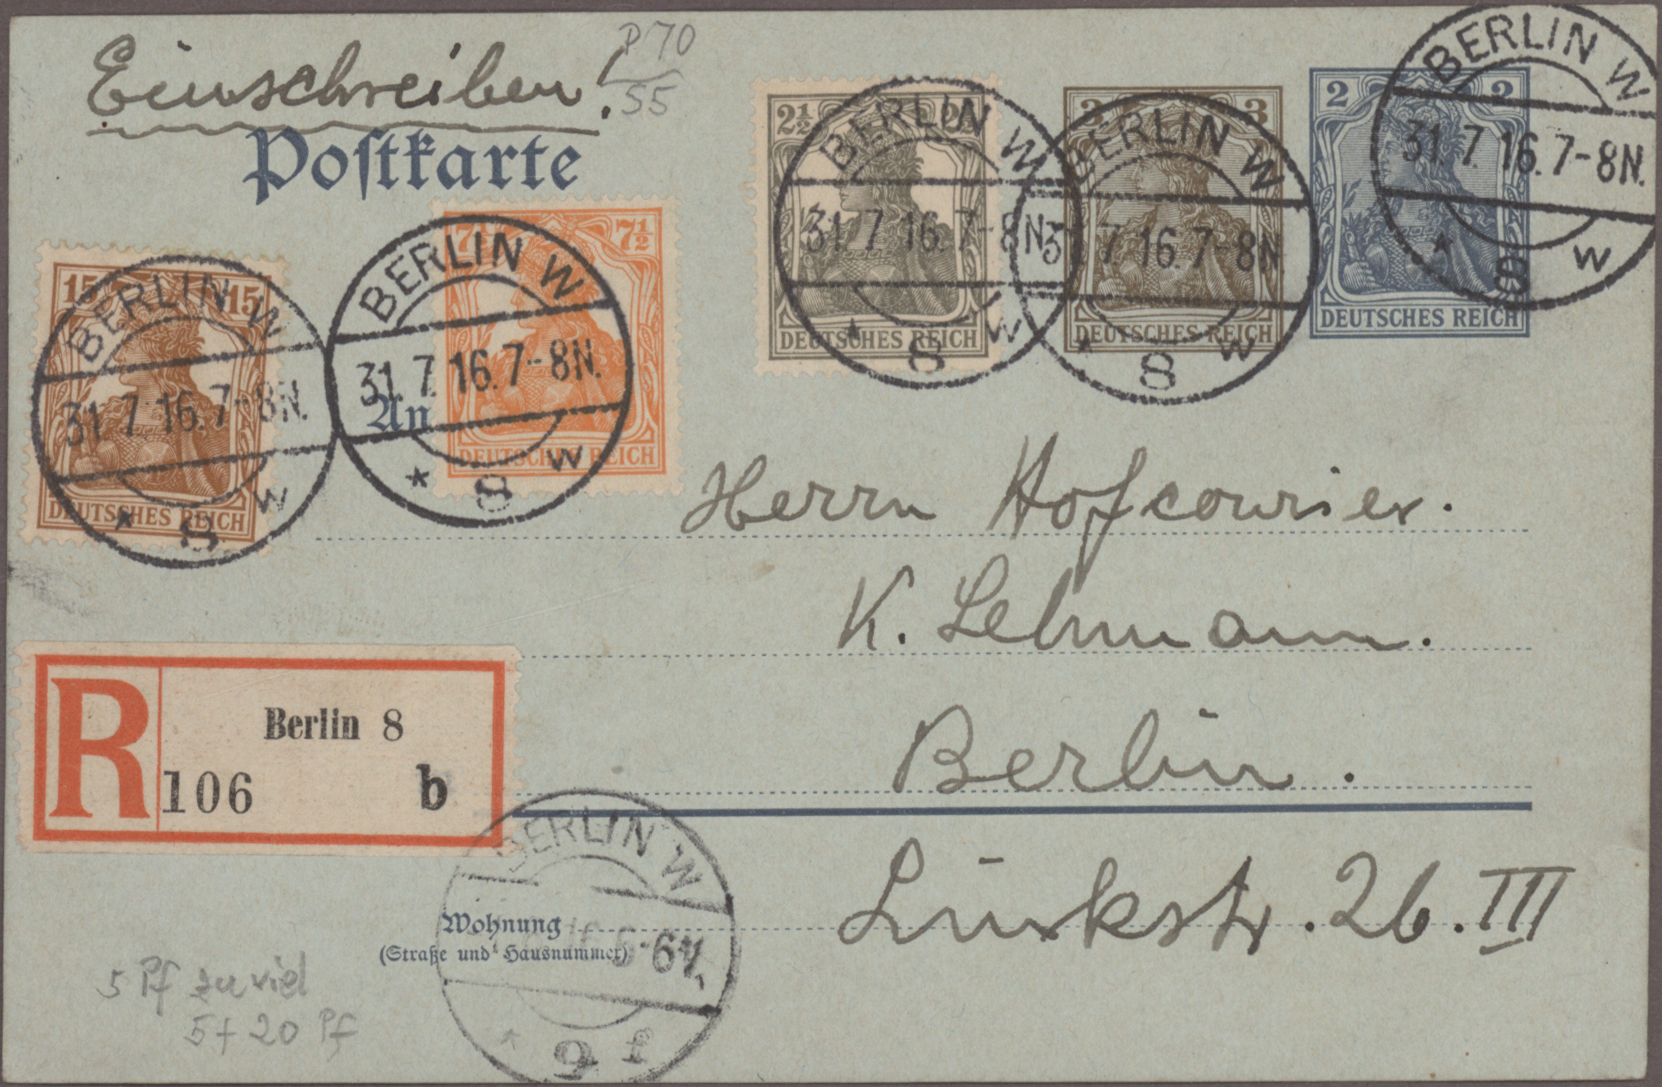 Einschreiben!
P 70
55
Postkarte
2½
DEUTSCHES REICH
3 3
DEUTSCHES REICH
2 2
DEUTSCHES REICH
BERLIN W
31.7.16.7-8N.
* 8 w
BERLIN W
31.7.16.7-8N
* 8 w
BERLIN W
31.7.16.7-8N.
* 8 w
15 15
DEUTSCHES REICH
BERLIN W
31.7.16.7-8N.
* 8 w
7½ 7½
DEUTSCHES REICH
BERLIN W
31.7.16.7-8N.
* 8 w
An
Herrn Hofcourier.
K. Lehmann.
Berlin.
R
Berlin 8
106 b
Linkstr. 26. III
BERLIN W
5-6V.
* 9 f
Wohnung
(Straße und Hausnummer)
5 Pf zu viel
5 + 20 Pf